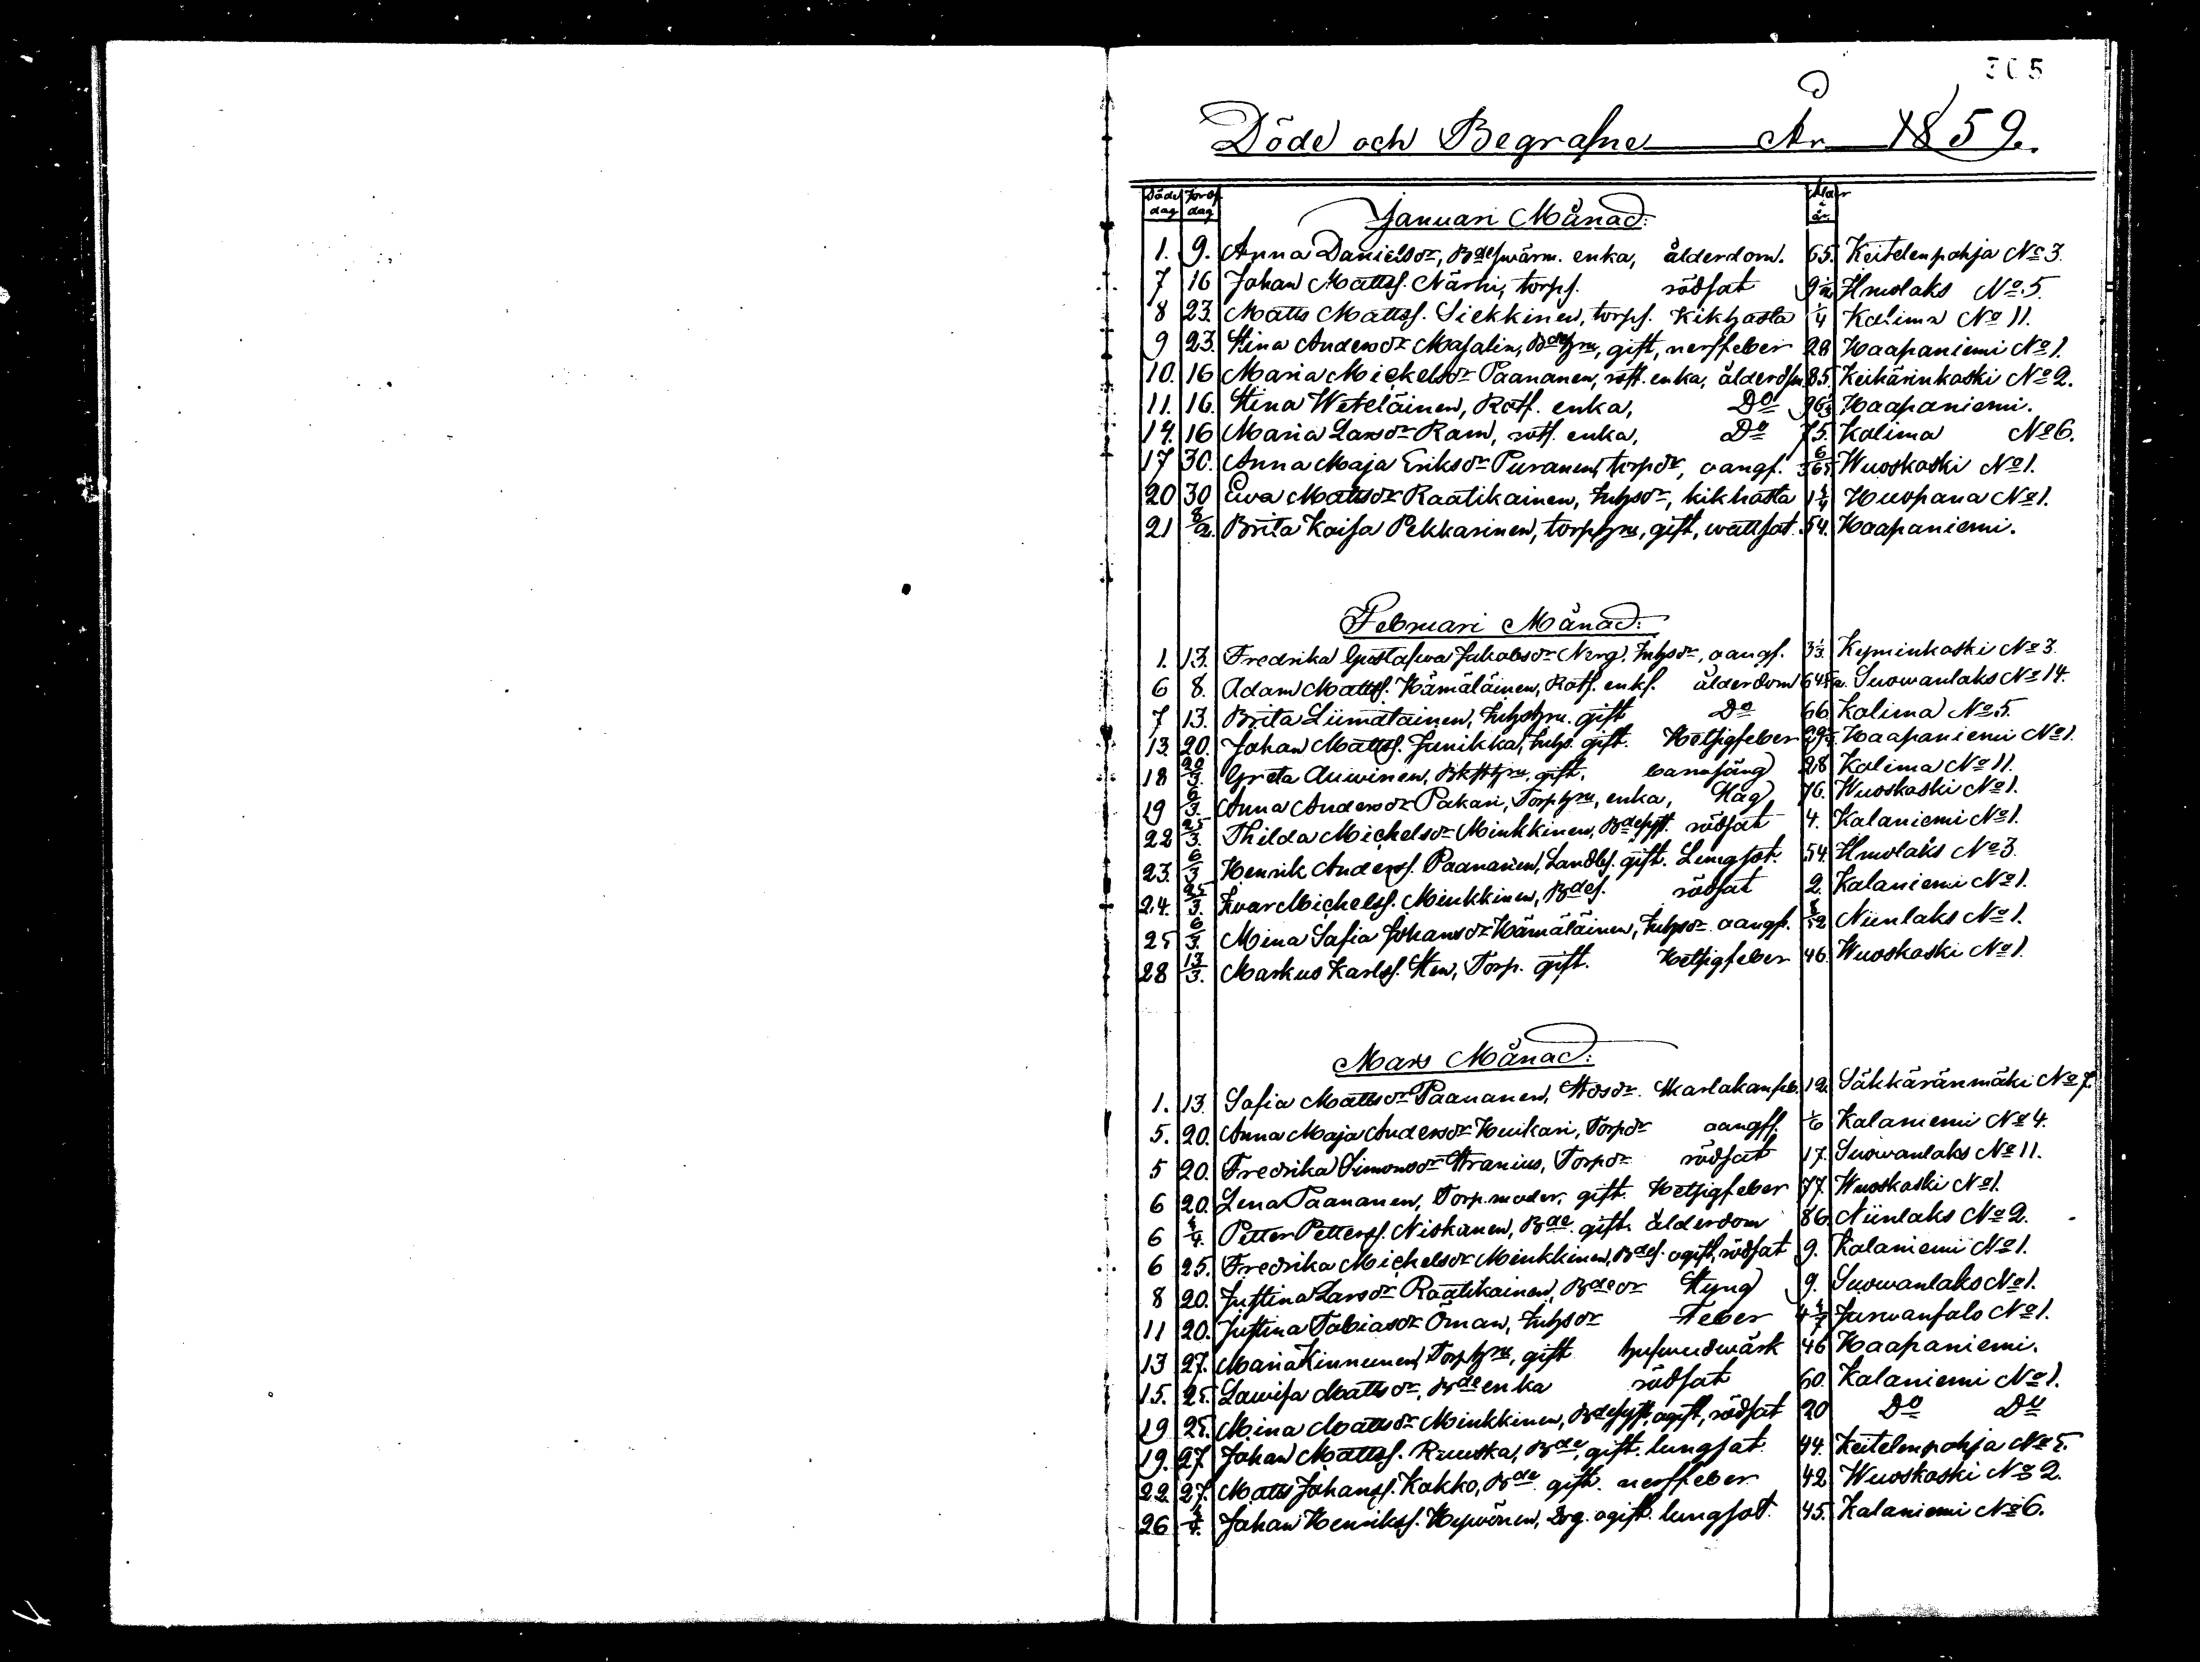 305
Döde och Begrafne År 1859.
Döds dag Jordf. dag Ålder i år
Januari Månad:
1. 9. Anna Danielsdr, Bdesvärm. enka, ålderdom. 65. Keitelenpohja No 3.
7 16 Johan Mattss. Närhi, torps. rödsat 9 1/12 Hmolaks No. 5.
8 23. Matts Mattss. Siekkinen, torps. Kikhosta 1/4 Kolima No 11.
9 23. Stina Andersdr Masalin, gift, nerffeber 28 Haapaniemi No 1.
10. 16 Maria Michelsdr Paananen, rott. enka, ålderdm. 85. Keihärinkoski No 2.
11. 16. Stina Weteläinen, Rotf. enka, Do 96 1/3 Haapaniemi.
14. 16 Maria Larsdr Ram, rotf. enka, Do 75. Kolima No 6.
17 30. Anna Maja Eriksdr Puranen, torpdr, oangf. 6/365 Wuoskoski No 1.
20 30 Ewa Mattsdr Raatikainen, Inhsdr, kikhosta 1 1/4 Huopana No 1.
21 8/2. Brita Kaisa Pekkarinen, torphru, gift, wattsot. 54. Haapaniemi.
Februari Månad:
1. 13. Fredrika Gustafwa Jakobsdr Nerg, Inhsdr, oangf. 3 1/3. Kyminkoski No 3.
6 8. Adam Mattss. Hämäläinen, Rotf. enkl. ålderdom 64 Suowanlaks No 14.
7 13. Brita Liimatainen, Inhshru. gift Do 66 Kolima No 5.
13. 20. Johan Mattss. Junikka, Inhs. gift. Hetsigfeber Haapaniemi No 1.
18 20/3. Greta Auwinen, gift, barnsäng 28 Kolima No 11.
19 6/3. Anna Andersdr Pakari, Torphru, enka, Håg 76. Wuoskoski No 1.
22 25/3. Thilda Michelsdr Minkkinen, rödsot 4. Kalaniemi No 1.
23. 6/3 Henrik Anderss. Paananen, Landbf. gift. Lungsot. 54. Hmolaks No 3.
24. 25/3. Iwar Michelss. Minkkinen, Bdes. rödsot 2. Kalaniemi No 1.
25 6/3. Mina Safia Johansdr Hämäläinen, Inhsdr oangf. Niinlaks No 1.
28 13/3. Markus Karlss. Sten, Torp. gift. Hetsigfeber 46. Wuoskoski No 1.
Mars Månad:
1. 13. Safia Mattsdr Paananen, Skarlakansfeb. 12. Säkkäränmäki No 7.
5. 20. Anna Maja Andersdr Huikari, Torpdr oangff. 1/6 Kalaniemi No 4.
5 20. Fredrika Simonsdr Stranius, Torpdr rödsot 17. Suowanlaks No 11.
6 20. Lena Paananen, Torp. moder, gift. Hetsigfeber 77. Wuoskoski No 1.
6 1/4. Petter Petterss. Niskanen, Bde gift. ålderdom 86. Niinlaks No 2.
6 25. Fredrika Michelsdr Minkkinen, Bdes. ogift, rödsot 9. Kalaniemi No 1.
8 20. Justina Larsdr Raatikainen, Bdedr Styng 9. Suowanlaks No 1.
11 20. Justina Tobiasdr Öman, Inhsdr Feber 4 Jurwansalo No 1.
13 27. Maria Kinnunen, Torphru, gift hufwudwärk 46 Haapaniemi.
15. 25. Lowisa Mattsdr, Bde enka rödsot 60. Kalaniemi No 1.
19 25. Mina Mattsdr Minkkinen, ogift, rödsot 20 Do Do
19. 27. Johan Mattss. Ruuska, Bde, gift. lungsot. 44. Keitelenpohja No 5.
22. 27. Matts Johanss. Kokko, Bde gift. nerffeber 42 Wuoskoski No 2.
26 1/4. Johan Henrikss. Hyvönen, Drg. ogift. lungsot. 45. Kalaniemi No 6.